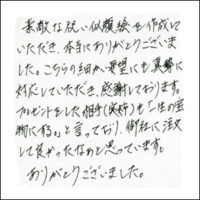 素敵な祝い似顔絵を作成して
いただき、本当にありがとうございま
した。こちらの細か要望にも真摯に
対応していただき、感謝しております。
プレゼントをした相手(実姉)も「一生の宝
物にする。」と言っており、御社に注文
して良かったなぁと思っています。
ありがとうございました。